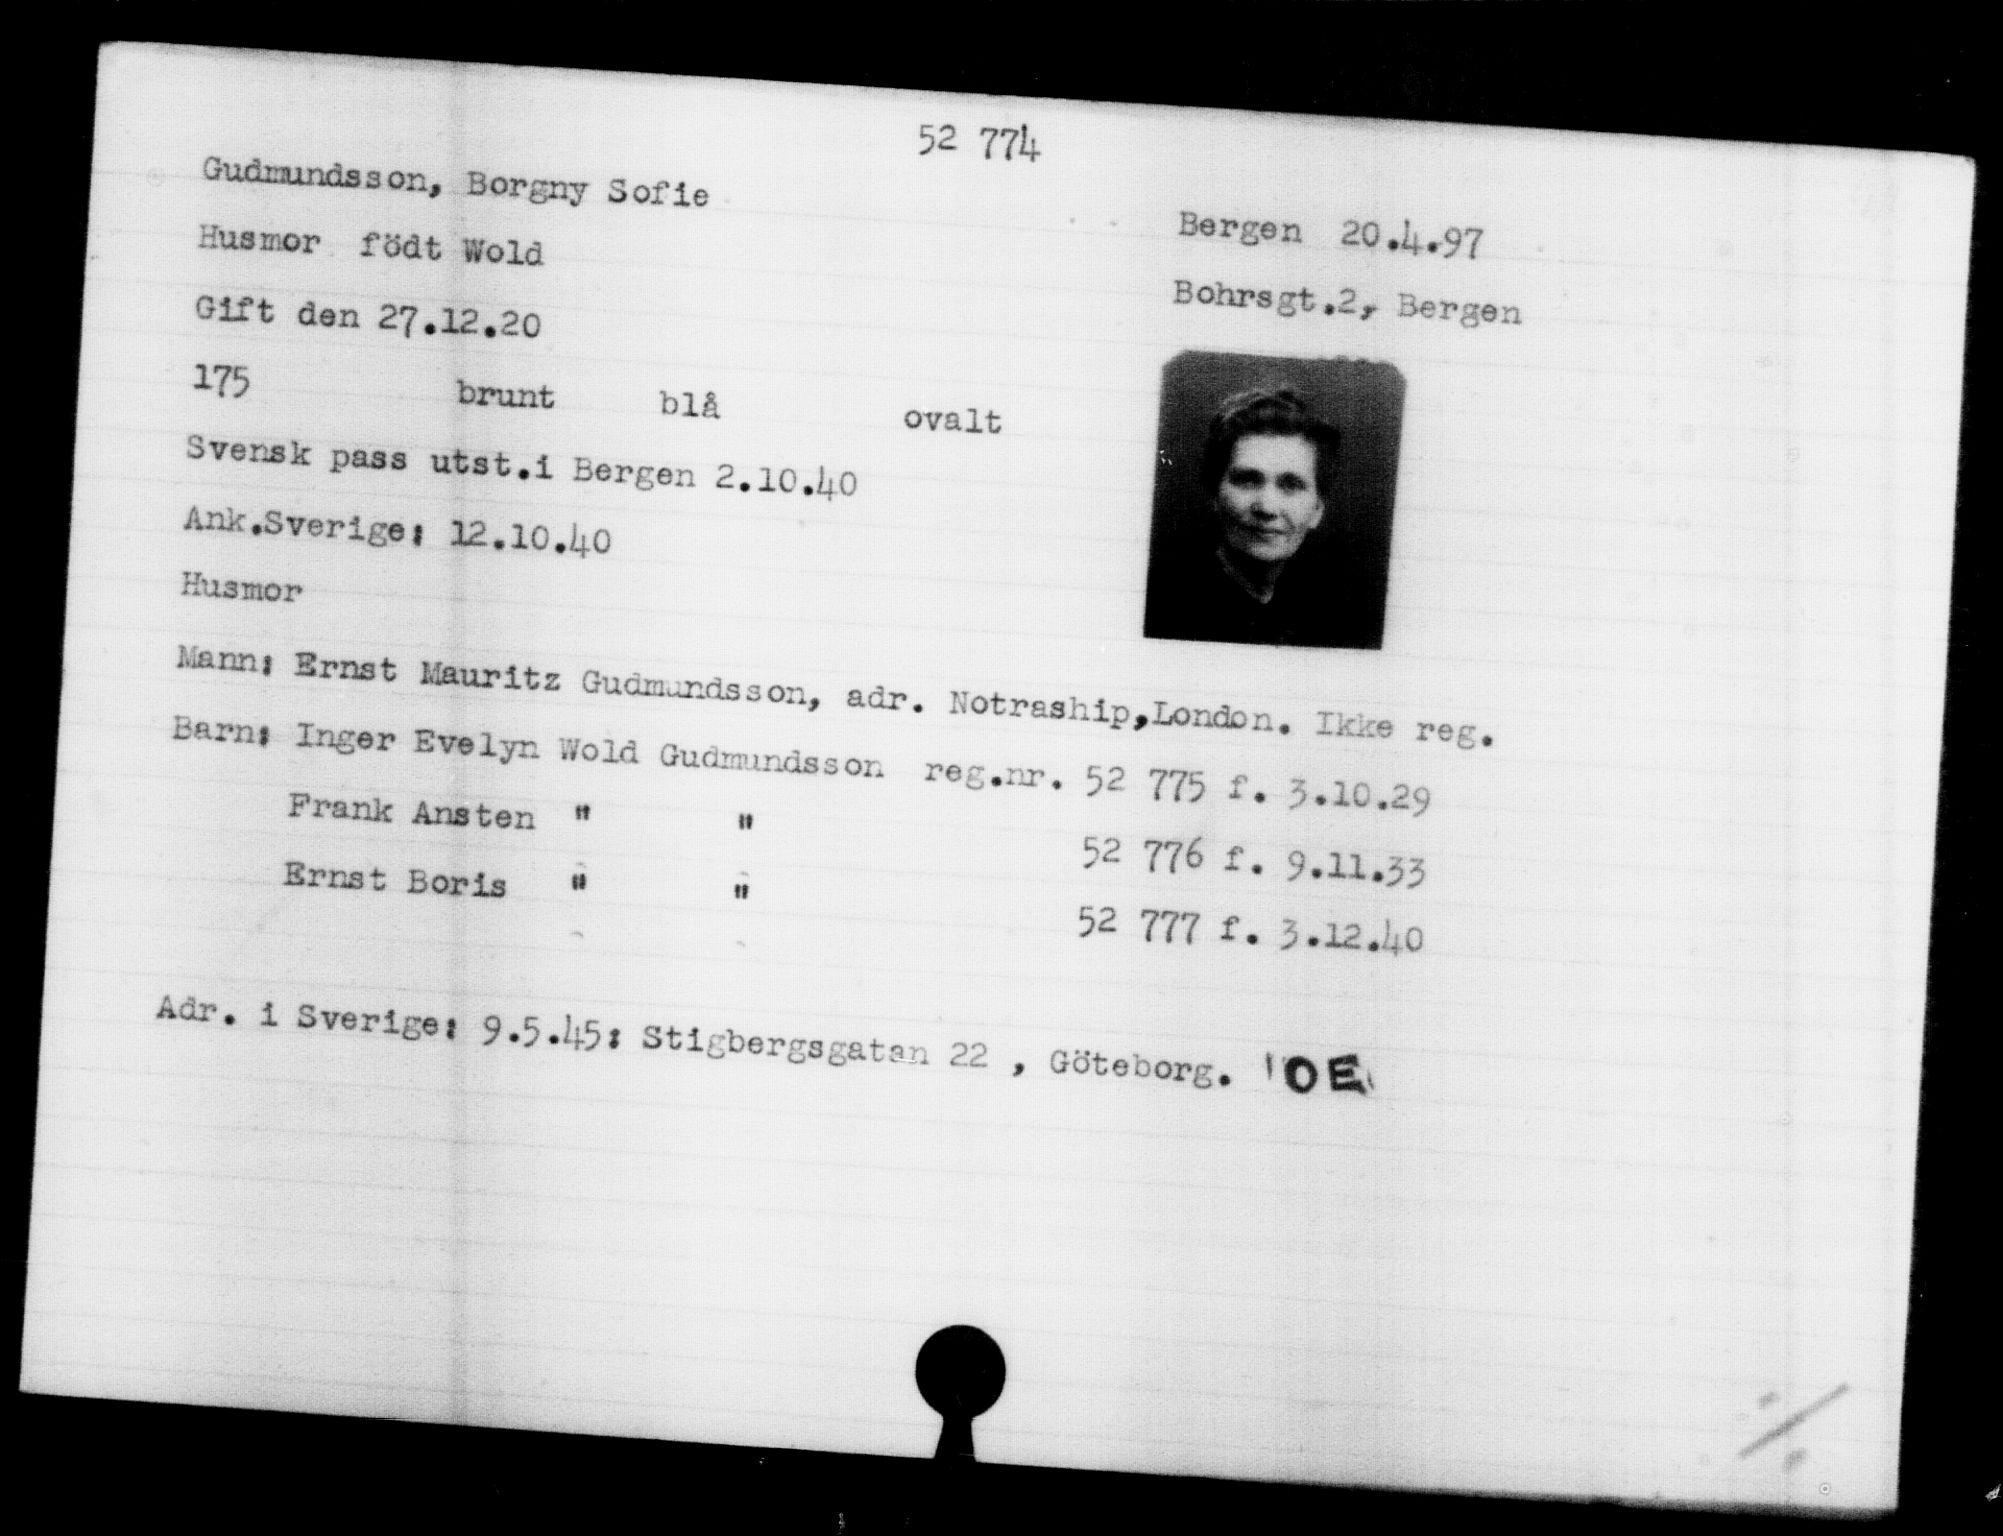 52 774
Gudmundsson, Borgny Sofie
Bergen 20.4.97
Husmor födt Wold
Bohrsgt.2, Bergen
Gift den 27.12.20
175 brunt blå ovalt
Svensk pass utst.i Bergen 2.10.40
Ank.Sverige: 12.10.40
Husmor
Mann: Ernst Mauritz Gudmundsson, adr. Notraship,London. Ikke reg.
Barn: Inger Evelyn Wold Gudmundsson reg.nr. 52 775 f. 3.10.29
Frank Ansten " " 52 776 f. 9.11.33
Ernst Boris " " 52 777 f. 3.12.40
Adr. i Sverige: 9.5.45: Stigbergsgatan 22 , Göteborg. OE